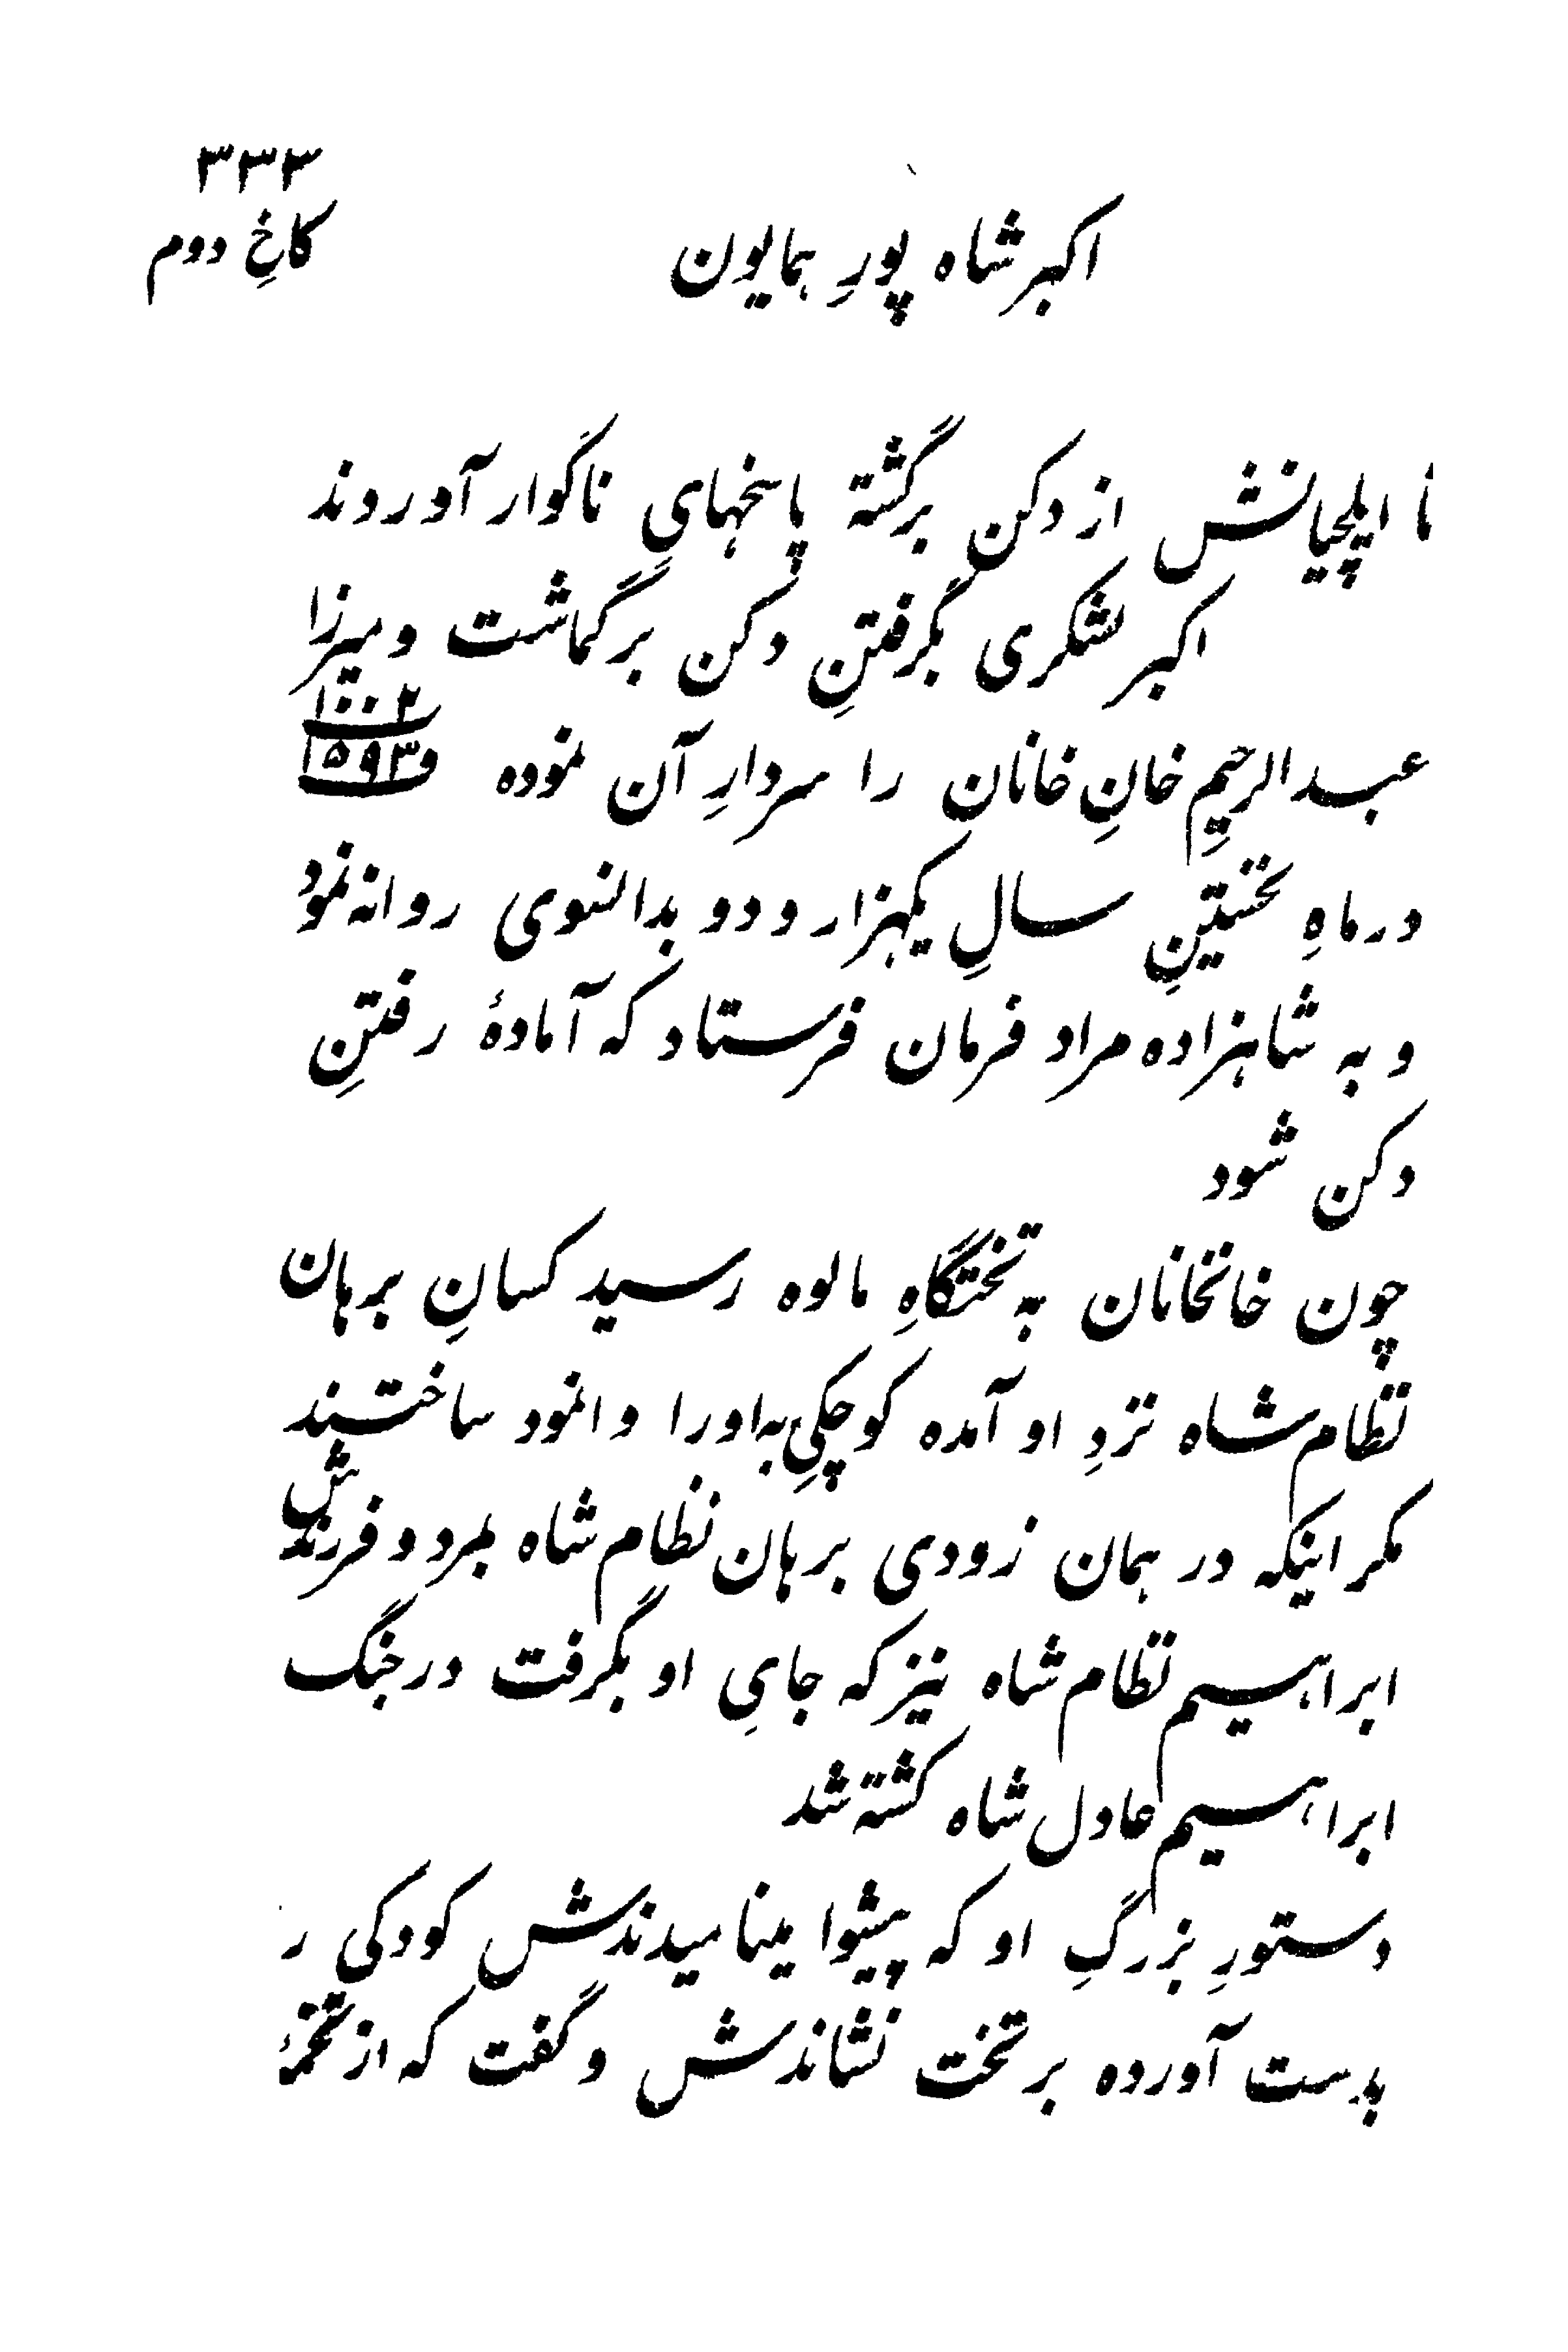 ۳۳۳
کاخِ دوم
اکبر شاه پورِ همایون
تا ایلچیانش از دکن برگشته پاسخهایِ ناگوار آوردند
اکبر لشکری بگرفتنِ دکن برگماشت و میرزا
عبدالرحیمِ خانِ خانان را سردارِ آن نموده ۱۰۰۲ و ۱۵۹۳
در ماهِ نخستینِ سالِ یکهزار و دو بدانسوی روانه نمود
و به شاهزاده مراد فرمان فرستاد که آمادهٔ رفتنِ
دکن شود
چون خانخانان به تختگاهِ مالوه رسید کسانِ برهان
نظام شاه نزدِ او آمده کوچکیِ به او را وانمود ساختند
مگر اینکه در همان زودی برهان نظام شاه بمرد و فرزندش
ابراهیم نظام شاه نیز که جایِ او بگرفت در جنگ
ابراهیم عادل شاه کشته شد
دستورِ بزرگِ او که پیشوا مینامیدندش کودکی را
بدست آورده بر تخت نشاندش و گفت که از تخمهٔ